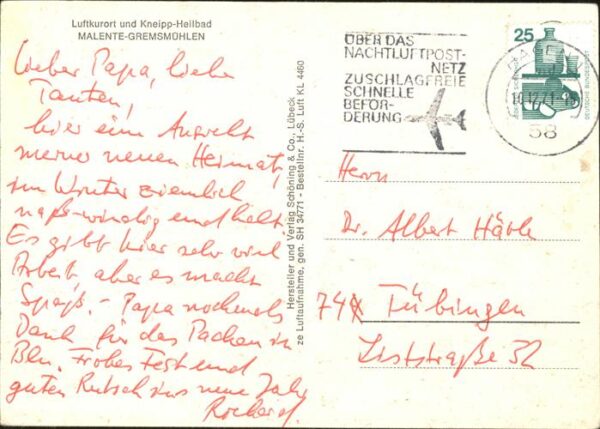 Luftkurort und Kneipp-Heilbad
MALENTE-GREMSMÜHLEN
Lieber Papa, liebe
Tanten,
hier eine Ansicht
meiner neuen Heimat,
im Winter ziemlich
naß-windig und kalt.
Es gibt hier sehr viel
Arbeit, aber es macht
Spaß. - Papa nochmals
Dank für das Packen in
Bln. Frohes Fest und
guten Rutsch ins neue Jahr
Hersteller und Verlag Schöning & Co., Lübeck
ze Luftaufnahme, gen. SH 34771 - Bestellnr. H.-S. Luft KL 4460
ÜBER DAS
NACHTLUFTPOST-
NETZ
ZUSCHLAGFREIE
SCHNELLE
BEFÖR-
DERUNG
25
DEUTSCHE BUNDESPOST
58
Herrn
Dr. Albert
74 Tübingen
Liststraße 32